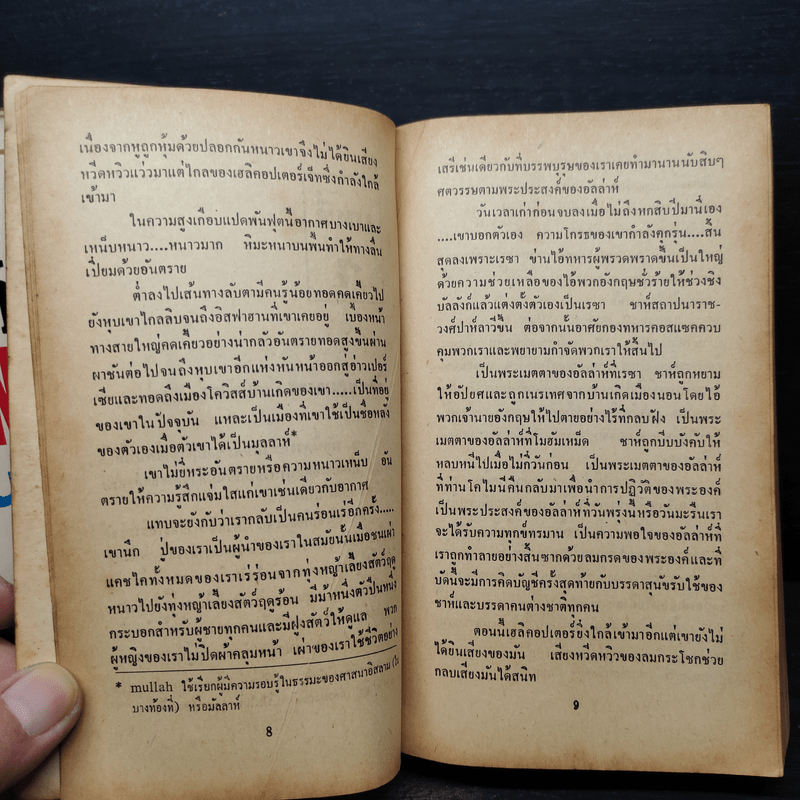 เนื่องจากหูถูกหุ้มด้วยปลอกกันหนาวเขาจึงไม่ได้ยินเสียง
หวีดหวิวแว่วมาแต่ไกลของเฮลิคอปเตอร์เจ็ทซึ่งกำลังใกล้
เข้ามา
ในความสูงเกือบแปดพันฟุตนี้อากาศบางเบาและ
เหน็บหนาว....หนาวมาก หิมะหนาบนพื้นทำให้ทางลื่น
เปี่ยมด้วยอันตราย
ต่ำลงไปเส้นทางลับตามีคนรู้น้อยทอดคดเคี้ยวไป
ยังหุบเขาไกลลิบจนถึงอิสฟาฮานที่เขาเคยอยู่ เบื้องหน้า
ทางสายใหญ่คดเคี้ยวอย่างน่ากลัวอันตรายทอดสูงขึ้นผ่าน
ผาชันต่อไปจนถึงหุบเขาอีกแห่งหันหน้าออกสู่อ่าวเปอร์
เซียและทอดถึงเมืองโควิสส์บ้านเกิดของเขา.....เป็นที่อยู่
ของเขาในปัจจุบัน และเป็นเมืองที่เขาใช้เป็นชื่อหลัง
ของตัวเองเมื่อตัวเขาได้เป็นมุลลาห์*
เขาไม่ยี่หระอันตรายหรือความหนาวเหน็บ อัน
ตรายให้ความรู้สึกแจ่มใสแก่เขาเช่นเดียวกับอากาศ
แทบจะยังกับว่าเรากลับเป็นคนร่อนเร่อีกครั้ง.....
เขานึก ปู่ของเราเป็นผู้นำของเราในสมัยนั้นเมื่อชนเผ่า
แคชไคทั้งหมดของเราเร่ร่อนจากทุ่งหญ้าเลี้ยงสัตว์ฤดู
หนาวไปยังทุ่งหญ้าเลี้ยงสัตว์ฤดูร้อน มีม้าหนึ่งตัวปืนหนึ่ง
กระบอกสำหรับผู้ชายทุกคนและมีฝูงสัตว์ให้ดูแล พวก
ผู้หญิงของเราไม่ปิดผ้าคลุมหน้า เผ่าของเราใช้ชีวิตอย่าง
* mullah ใช้เรียกผู้มีความรอบรู้ในธรรมะของศาสนาอิสลาม (ใน
บางท้องที่) หรือมัลลาห์
8
เสรีเช่นเดียวกับที่บรรพบุรุษของเราเคยทำมานานนับสิบๆ
ศตวรรษตามพระประสงค์ของอัลล่าห์
วันเวลาเก่าก่อนจบลงเมื่อไม่ถึงหกสิบปีมานี่เอง
....เขาบอกตัวเอง ความโกรธของเขากำลังคุกรุ่น....สิ้น
สุดลงเพราะเรซา ข่านไอ้ทหารผู้พรวดพราดขึ้นเป็นใหญ่
ด้วยความช่วยเหลือของไอ้พวกอังกฤษชั่วร้ายให้ช่วงชิง
บัลลังก์แล้วแต่งตั้งตัวเองเป็นเรซา ชาห์สถาปนาราช-
วงศ์ปาห์ลาวีขึ้น ต่อจากนั้นอาศัยกองทหารคอสแซคควบ
คุมพวกเราและพยายามกำจัดพวกเราให้สิ้นไป
เป็นพระเมตตาของอัลล่าห์ที่เรซา ชาห์ถูกหยาม
ให้อัปยศและถูกเนรเทศจากบ้านเกิดเมืองนอนโดยไอ้
พวกเจ้านายอังกฤษให้ไปตายอย่างไร้ที่กลบฝัง เป็นพระ
เมตตาของอัลล่าห์ที่โมฮัมเหม็ด ชาห์ถูกบีบบังคับให้
หลบหนีไปเมื่อไม่กี่วันก่อน เป็นพระเมตตาของอัลล่าห์
ที่ท่านโคไมนีคืนกลับมาเพื่อนำการปฏิวัติของพระองค์
เป็นพระประสงค์ของอัลล่าห์ที่วันพรุ่งนี้หรือวันมะรืนเรา
จะได้รับความทุกข์ทรมาน เป็นความพอใจของอัลล่าห์ที่
เราถูกทำลายอย่างสิ้นซากด้วยลมกรดของพระองค์และที่
บัดนี้จะมีการคิดบัญชีครั้งสุดท้ายกับบรรดาสุนัขรับใช้ของ
ชาห์และบรรดาคนต่างชาติทุกคน
ตอนนี้เฮลิคอปเตอร์ยิ่งใกล้เข้ามาอีกแต่เขายังไม่
ได้ยินเสียงของมัน เสียงหวีดหวิวของลมกระโชกช่วย
กลบเสียงมันได้สนิท
9